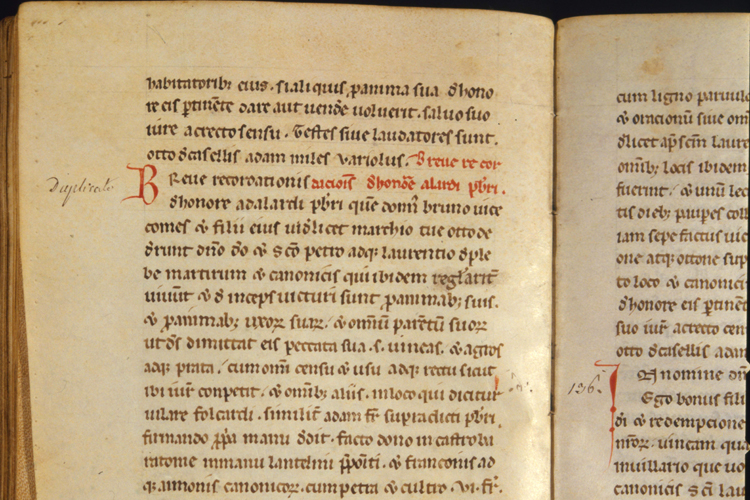 habitatorib; eius. si aliquis p anima sua d hono
re eis ptinete dare aut uende uoluerit. saluo suo
iure ac recto sensu. Testes siue laudatores sunt.
otto d casellis adam miles variolus. Breue recor
Duplicat
BReue recordationis dacionis d honore alardi pbri.
d honore adalardi pbri que dom bruno uice
comes & filii eius uidlicet marchio tue otto de
drunt dno do & sco petro adq; laurentio d ple
be martirum & canonicis qui ibidem reglarit
uiuut & d inceps uicturi sunt p animab; suis.
& p animab; uxor suar. & omiu paretu suor
ut ds dimittat eis peccata sua. s. uineas. & agros
adq; prata. cum omi censu & usu adq; rectu sicut
ibi iur conpetit. & omib; aliis. in loco qui dicitur
uilare folcardi. similit adam fr supradicti pbri
firmando ppa manu ddit. facto dono in castro lu
ratome in manu lantelmi ppositi. & franconis ad
q; aimonis canonicor. cum petra & cultro. VI. fr.
cum ligno paruulo
& oracionu siue om
dlicet ap scm laure
omib; locis ibidem
fuerint. & unu lec
tis dieb; paupes coll
iam sepe factus uic
one atq; ottone sup
to loco & canonici
d honore eis ptinent
suo iur ac recto cen
otto d casellis adam
136.
IN nomine dni
Ego bonus fili
di & redempcione
meor. uineam qua
in uillario que uo
canonicis sci lau